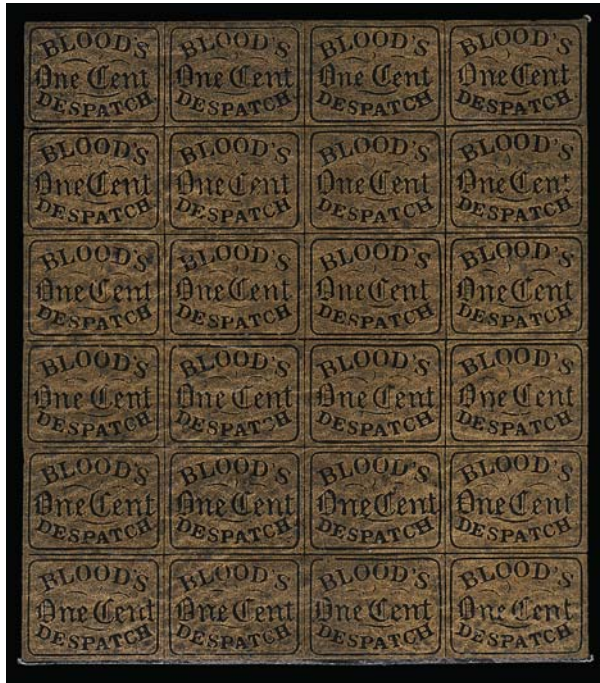 BLOOD'S
One Cent
DESPATCH.
BLOOD'S
One Cent
DESPATCH.
BLOOD'S
One Cent
DESPATCH.
BLOOD'S
One Cent
DESPATCH.
BLOOD'S
One Cent
DESPATCH
BLOOD'S
One Cent
DESPATCH
BLOOD'S
One Cent
DESPATCH
BLOOD'S
One Cent
DESPATCH
BLOOD'S
One Cent
DESPATCH
BLOOD'S
One Cent
DESPATCH
BLOOD'S
One Cent
DESPATCH
BLOOD'S
One Cent
DESPATCH
BLOOD'S
One Cent
DESPATCH
BLOOD'S
One Cent
DESPATCH
BLOOD'S
One Cent
DESPATCH
BLOOD'S
One Cent
DESPATCH
BLOOD'S
One Cent
DESPATCH
BLOOD'S
One Cent
DESPATCH
BLOOD'S
One Cent
DESPATCH
BLOOD'S
One Cent
DESPATCH
BLOOD'S
One Cent
DESPATCH
BLOOD'S
One Cent
DESPATCH
BLOOD'S
One Cent
DESPATCH
BLOOD'S
One Cent
DESPATCH